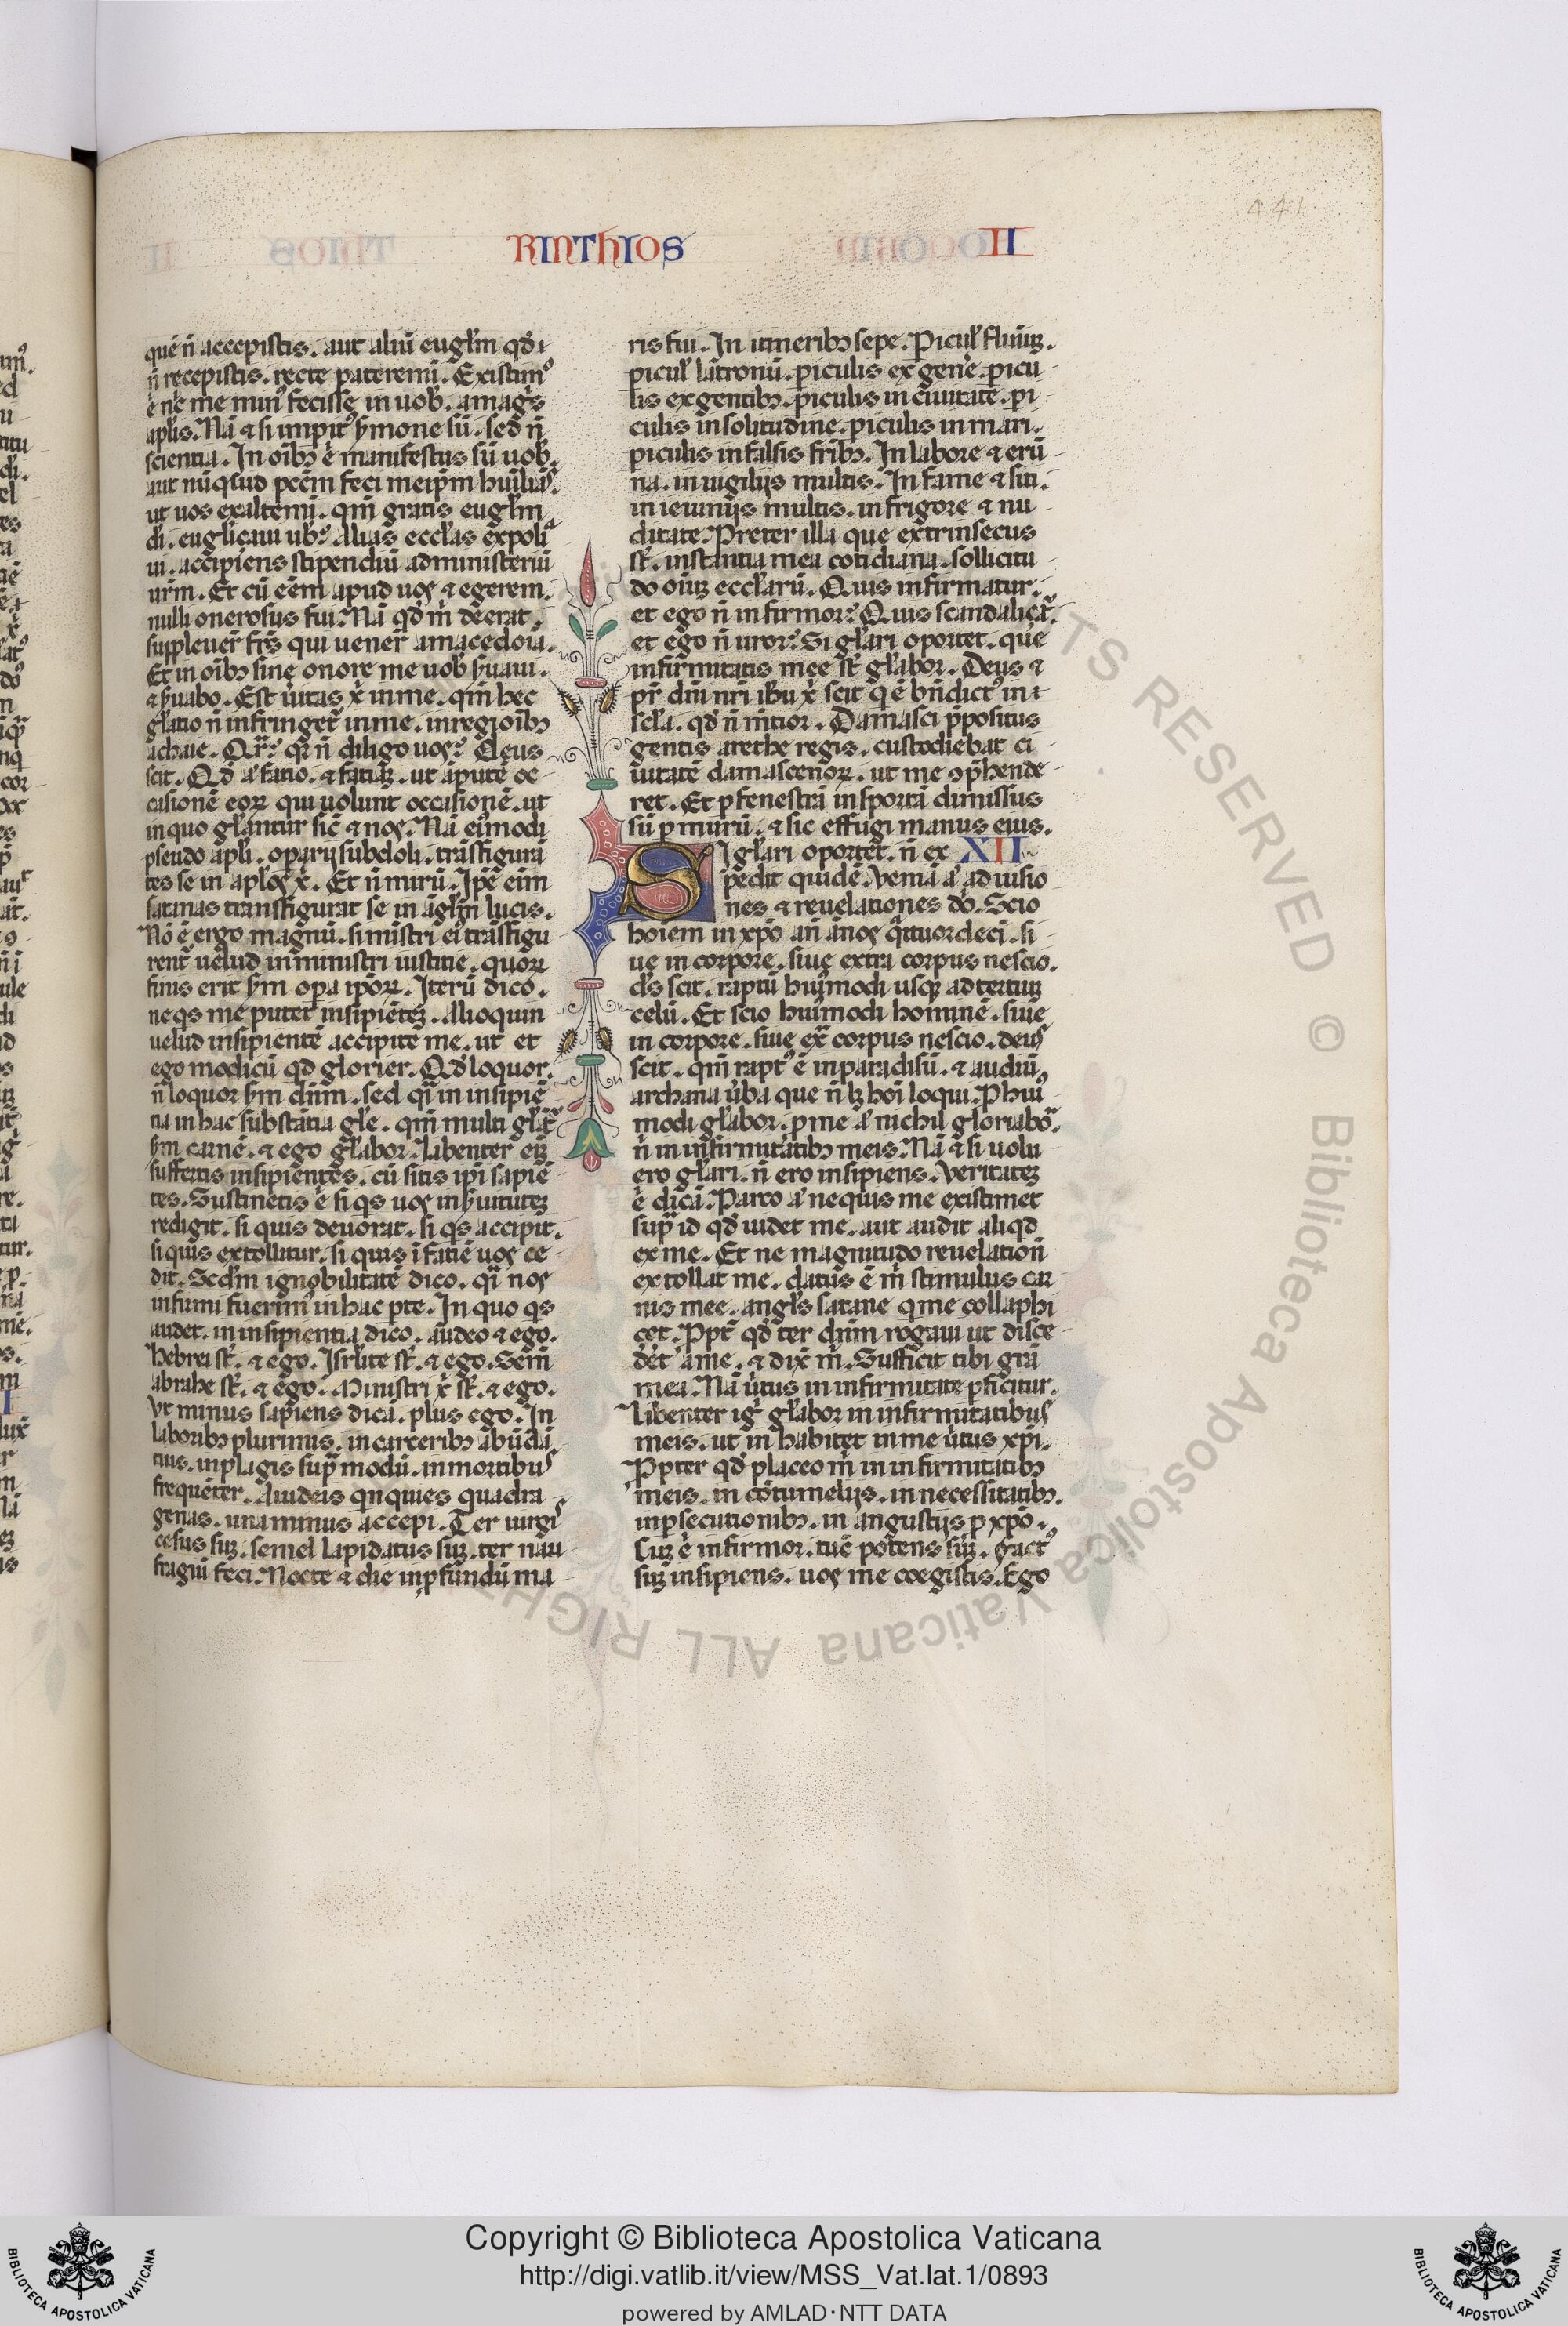 RINTHIOS II
441
quē n̄ accepistis. aut aliud eugl̄m qd̄
n̄ recepistis. recte pateremī. Existimꝰ
ē nc̄ me minꝰ fecisse in uob. a magis
apl̄is. Nā & si imperitꝰ sermone sū. sed n̄
scientia. In oīb; ē manifestus sū uob.
aut nūquid pccm feci meip̄m humiliās.
ut uos exaltemī. qm̄ gratis eugl̄m
dī. euglicaui ub. Alias eccl̄as expolia
ui. accipiens stipendiū ad ministeriū
urm. Et cū eēm apud uos & egerem.
nulli onerosus fui. Nā qd̄ m̄ deerat.
suppleuer̄ frs̄ qui uener̄ a macedoīa.
Et in oīb; sine onore me uob seruaui.
& seruabo. Est ūitas xi in me. qm̄ hec
glatio n̄ infringet̄ in me. in regioīb;
achaie. Qr̄e? qr n̄ diligo uos? Deus
scit. Qd̄ aū fatio. & fatiā. ut āputē oc-
casionē eoꝝ qui uolunt occasionē. ut
in quo gl̄antur sic̄ & nos. Nā eiꝰmodi
pseudo apl̄i. operarij subdoli. trāsfigurā
tes se in apl̄os xi. Et n̄ mirū. Ip̄e eīm
satanas transfigurat se in āgl̄m lucis.
Nō ē ergo magnū. si mīstri eiꝰ trāsfigu
rent̄ uelud in ministri iustitie. quoꝝ
finis erit sm̄ opera ip̄oꝝ. Iterū dico.
ne qs me putet insipiētē. Alioquin
uelud insipientē accipite me. ut et
ego modicū qd glorier. Qd̄ loquor.
n̄ loquor sm̄ dnm̄. sed qīi in insipiē
tia in hac substātia gl̄e. qm̄ multi gl̄ant̄
sm̄ carnē. & ego gl̄abor. Libenter eī
suffertis insipientes. cū sitis ip̄i sapiē
tes. Sustinetis ē si qs uos in seruitutē
redigit. si quis deuorat. si qs accipit.
si quis extollitur. si quis ī fatiē uos ce-
dit. Scdm ignobilitatē dico. qīi nos
infirmi fuerimꝰ in hac pte. In quo qs
audet. in insipientia dico. audeo & ego.
Hebrei st̄. & ego. Isrl̄ite st̄. & ego. Semn̄
abrahe st̄. & ego. Ministri xi st̄. & ego.
Vt minus sapiens dicā. plus ego. In
laborib; plurimis. in carcerib; abūdā
tius. in plagis supra modū. in mortibus
frequēter. A iudeis qnquies quadra-
genas. una minus accepi. Ter uirgis
cesus sū. semel lapidatus sū. ter nau
fragiū feci. Nocte & die in pfundū ma-
ris fui. In itinerib; sepe. Picul̄ fluminū.
picul̄ latronū. piculis ex genere. picu-
lis ex gentib;. piculis in ciuitate. pi-
culis in solitudine. piculis in mari.
piculis in falsis frīb;. In labore & erū
na. in uigilijs multis. In fame & siti.
in ieiunijs multis. in frigore & nu-
ditate. Preter illa que extrinsecus
st̄. instantia mea cotidiana. sollicitu
do oīum eccl̄arū. Quis infirmatur.
et ego n̄ infirmor? Quis scandalicat̄.
et ego n̄ uror? Si gl̄ari oportet. que
infirmitatis mee st̄ gl̄abor. Deus &
pr̄ dn̄i nri ihu xi scit q ē bn̄dictꝰ in
scl̄a. qd̄ n̄ mītior. Damasci p̄positus
gentis arethe regis. custodiebat ci-
uitatē damascenoꝝ. ut me ↄp̄hende-
ret. Et p fenestrā in sportā dimissus
sū p murū. & sic effugi manus eius.
Si gl̄ari oportet. n̄ ex XII
pedit quidē. Veniā aū ad uisio
nes & reuelationes dn̄i. Scio
hoīem in xpō an̄ ānos qtuordecī. si-
ue in corpore. siue extra corpus nescio.
ds̄ scit. raptū huiꝰmodi usq; ad tertiū
celū. Et scio huiꝰmodi hominē. siue
in corpore. siue ext̄ corpus nescio. deus
scit. qm̄ raptꝰ ē in paradisū. & audiuit
archana ūba que n̄ l; hoī loqui. P huiꝰ
modi gl̄abor. p me aū nichil gloriabor.
n̄ in infirmitatib; meis. Nā & si uolu
ero gl̄ari. n̄ ero insipiens. Veritatē
ē dicā. Parco aū ne quis me existimet
supra id qd̄ uidet me. aut audit aliqd
ex me. Et ne magnitudo reuelation̄
extollat me. datus ē m̄ stimulus car
nis mee. angl̄s satane q me collaphi
cet. Ppt̄ qd̄ ter dnm̄ rogaui ut disce-
det̄ a me. & dix̄ m̄. Sufficit tibi grā
mea. Nā ūtus in infirmitate pficitur.
Libenter iḡ gl̄abor in infirmitatibus
meis. ut inhabitet in me ūtus xpi.
Ppter qd̄ placeo m̄ in infirmitatib;
meis. in cōtumelijs. in necessitatib;.
in psecutionib;. in angustijs p xpō.
Cum ē infirmor. tūc potens sū. Factꝰ
sū insipiens. uos me coegistis. Ego
ALL RIGHTS RESERVED © Biblioteca Apostolica Vaticana
Copyright © Biblioteca Apostolica Vaticana
http://digi.vatlib.it/view/MSS_Vat.lat.1/0893
powered by AMLAD·NTT DATA
BIBLIOTECA APOSTOLICA VATICANA
BIBLIOTECA APOSTOLICA VATICANA